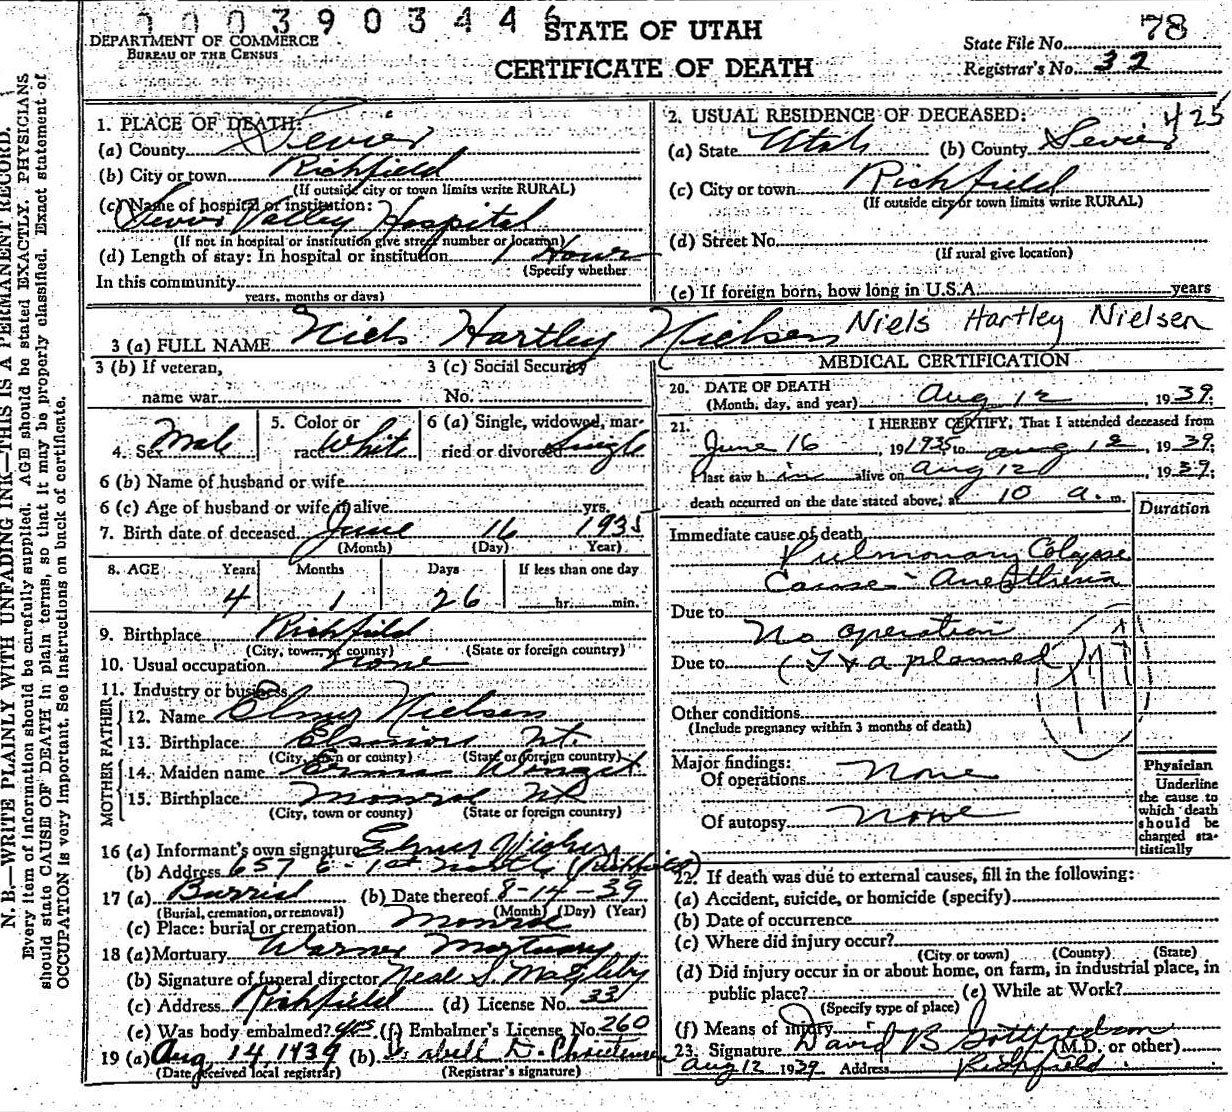 0003903446
STATE OF UTAH
CERTIFICATE OF DEATH
DEPARTMENT OF COMMERCE
BUREAU OF THE CENSUS
78
State File No.
Registrar's No. 32
N. B.—WRITE PLAINLY WITH UNFADING INK—THIS IS A PERMANENT RECORD.
Every item of information should be carefully supplied. AGE should be stated EXACTLY. PHYSICIANS
should state CAUSE OF DEATH in plain terms, so that it may be properly classified. Exact statement of
OCCUPATION is very important. See instructions on back of certificate.
1. PLACE OF DEATH:
(a) County Sevier
(b) City or town Richfield
(If outside city or town limits write RURAL)
(c) Name of hospital or institution:
Sevier Valley Hospital
(If not in hospital or institution give street number or location)
(d) Length of stay: In hospital or institution 1 Hour
(Specify whether
In this community
years, months or days)
2. USUAL RESIDENCE OF DECEASED: 425
(a) State Utah (b) County Sevier
(c) City or town Richfield
(If outside city or town limits write RURAL)
(d) Street No.
(If rural give location)
(e) If foreign born, how long in U.S.A. years
3 (a) FULL NAME Niels Hartley Nielsen Niels Hartley Nielsen
3 (b) If veteran,
name war
3 (c) Social Security
No.
4. Sex Male
5. Color or
race White
6 (a) Single, widowed, mar-
ried or divorced Single
6 (b) Name of husband or wife
6 (c) Age of husband or wife if alive yrs.
7. Birth date of deceased June 16 1935
(Month) (Day) Year)
8. AGE Years Months Days If less than one day
4 1 26 hr. min.
9. Birthplace Richfield
(City, town, or county) (State or foreign country)
10. Usual occupation None
11. Industry or business
FATHER
12. Name Elmer Nielsen
13. Birthplace Elsinore Ut.
(City, town or county) (State or foreign country)
MOTHER
14. Maiden name Erma
15. Birthplace Monroe Ut
(City, town or county) (State or foreign country)
16 (a) Informant's own signature Elmer
(b) Address 657 E - 1st North (Richfield)
17 (a) Burrial (b) Date thereof 8-14-39
(Burial, cremation, or removal) (Month) (Day) (Year)
(c) Place: burial or cremation Monroe
18 (a) Mortuary Warner Mortuary
(b) Signature of funeral director Neal S. Magleby
(c) Address Richfield (d) License No. 33
(e) Was body embalmed? yes (f) Embalmer's License No. 260
19 (a) Aug 14 1939 (b) D. Christensen
(Date received local registrar) (Registrar's signature)
MEDICAL CERTIFICATION
20. DATE OF DEATH
(Month, day, and year) Aug 12, 1939.
21. I HEREBY CERTIFY, That I attended deceased from
June 16, 191935 to Aug 12, 1939.
I last saw h im alive on Aug 12, 1939.
death occurred on the date stated above, at 10 a. m.
Duration
Immediate cause of death
Pulmonary Colapse
Cause - Anesthesia
Due to
No operation
Due to (T & A planned)
Other conditions
(Include pregnancy within 3 months of death)
Major findings:
Of operations None
Of autopsy None
Physician
Underline
the cause to
which death
should be
charged sta-
tistically
22. If death was due to external causes, fill in the following:
(a) Accident, suicide, or homicide (specify)
(b) Date of occurrence
(c) Where did injury occur?
(City or town) (County) (State)
(d) Did injury occur in or about home, on farm, in industrial place, in
public place? (e) While at Work?
(Specify type of place)
(f) Means of injury
23. Signature David B Gottfredson (M.D. or other)
Aug 12 1939 Address Richfield